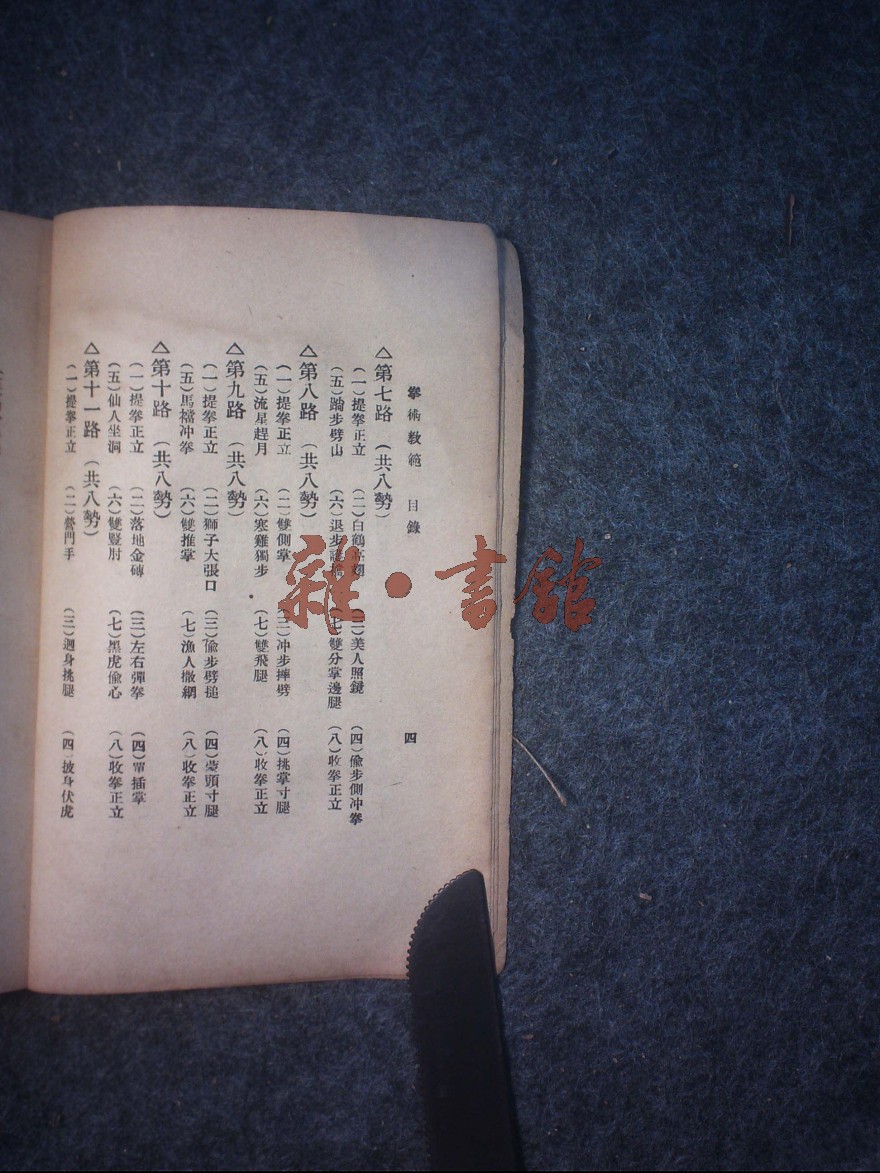 拳術教範　目錄　四
△第七路　（共八勢）
（一）提拳正立　（二）白鶴亮翅　（三）美人照鏡　（四）偸步側冲拳
（五）踰步劈山　（六）退步　（七）雙分掌邊腿　（八）收拳正立
△第八路　（共八勢）
（一）提拳正立　（二）雙側掌　（三）冲步摔劈　（四）挑掌寸腿
（五）流星趕月　（六）寒雞獨步　（七）雙飛腿　（八）收拳正立
△第九路　（共八勢）
（一）提拳正立　（二）獅子大張口　（三）偸步劈搥　（四）蒙頭寸腿
（五）馬襠冲拳　（六）雙推掌　（七）漁人撒網　（八）收拳正立
△第十路　（共八勢）
（一）提拳正立　（二）落地金磚　（三）左右彈拳　（四）單插掌
（五）仙人坐洞　（六）雙豎肘　（七）黑虎偸心　（八）收拳正立
△第十一路　（共八勢）
（一）提拳正立　（二）營門手　（三）迴身挑腿　（四）披身伏虎
雜・書館